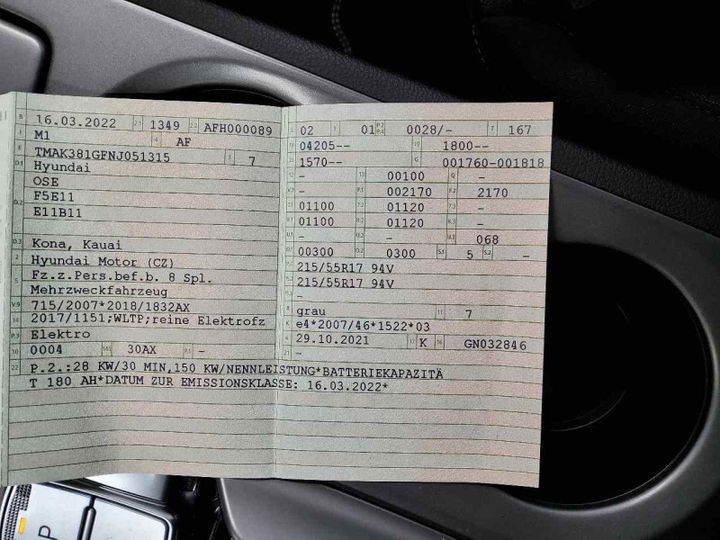 16.03.2022 1349 AFH000089
M1 AF
TMAK381GFNJ051315 7
Hyundai
OSE
F5E11
E11B11
Kona, Kauai
Hyundai Motor (CZ)
Fz.z.Pers.bef.b. 8 Spl.
Mehrzweckfahrzeug
715/2007*2018/1832AX
2017/1151;WLTP;reine Elektrofz
Elektro
0004 30AX -
02 01 0028/- 167
04205-- 1800--
1570-- 001760-001818
- 00100 -
- 002170 2170
01100 01120 -
01100 01120 -
- - 068
00300 0300 5 -
215/55R17 94V
215/55R17 94V
-
grau 7
e4*2007/46*1522*03
29.10.2021 K GN032846
-
P.2.:28 KW/30 MIN,150 KW/NENNLEISTUNG*BATTERIEKAPAZITÄ
T 180 AH*DATUM ZUR EMISSIONSKLASSE: 16.03.2022*
P